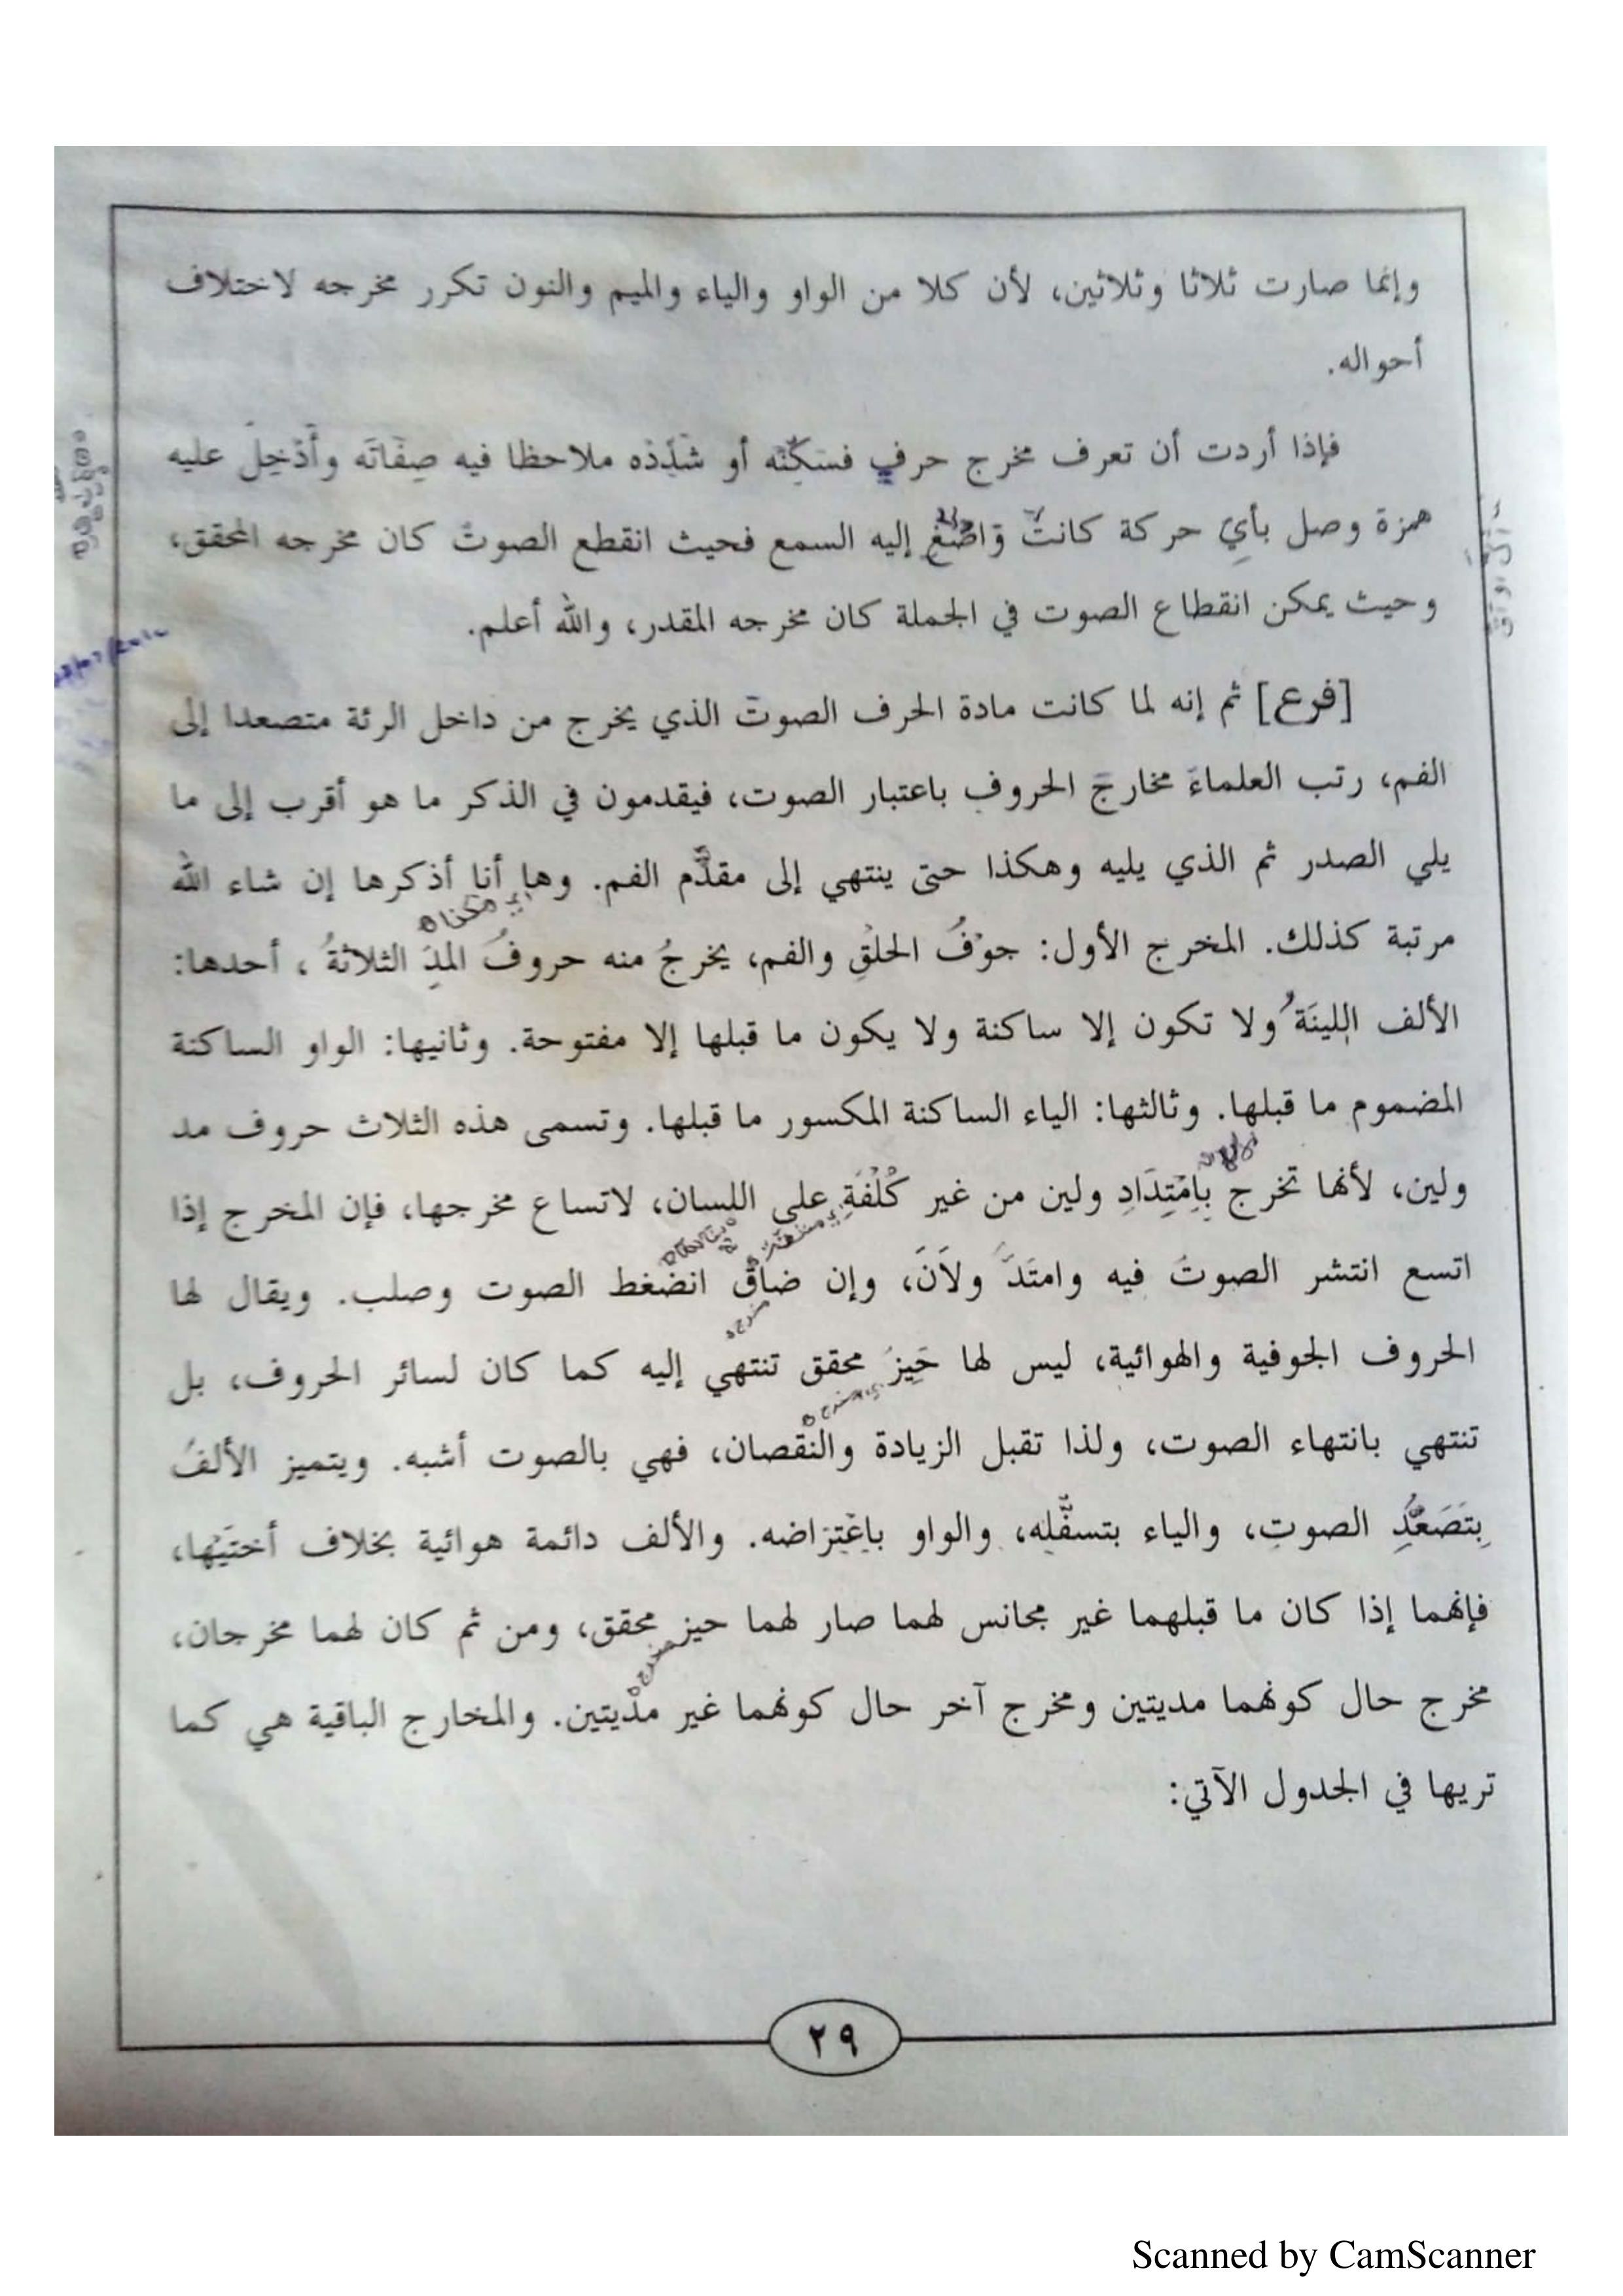 وإنما صارت ثلاثا وثلاثين، لأن كلا من الواو والياء والميم والنون تكرر مخرجه لاختلاف
أحواله.
فإذا أردت أن تعرف مخرج حرفٍ فسَكِّنْه أو شدِّدْه ملاحظا فيه صِفَاتَه وأَدْخِلْ عليه
همزة وصل بأيِّ حركة كانتْ وَاصْغِ إليه السمع فحيث انقطع الصوتُ كان مخرجه المحقق،
وحيث يمكن انقطاع الصوت في الجملة كان مخرجه المقدر، والله أعلم.
[فرع] ثم إنه لما كانت مادة الحرف الصوتَ الذي يخرج من داخل الرئة متصعدا إلى
الفم، رتب العلماءُ مخارجَ الحروف باعتبار الصوت، فيقدمون في الذكر ما هو أقرب إلى ما
يلي الصدر ثم الذي يليه وهكذا حتى ينتهي إلى مقدَّم الفم. وها أنا أذكرها إن شاء الله
مرتبة كذلك. المخرج الأول: جوْفُ الحلْقِ والفم، يخرجُ منه حروفُ المدِّ الثلاثةُ، أحدها:
الألف اللينَةُ ولا تكون إلا ساكنة ولا يكون ما قبلها إلا مفتوحة. وثانيها: الواو الساكنة
المضموم ما قبلها. وثالثها: الياء الساكنة المكسور ما قبلها. وتسمى هذه الثلاث حروف مد
ولين، لأنها تخرج بِامْتِدَادٍ ولين من غير كُلْفَةٍ على اللسان، لاتساع مخرجها، فإن المخرج إذا
اتسع انتشر الصوتُ فيه وامتَدَّ ولاَنَ، وإن ضاقَ انضغط الصوت وصلب. ويقال لها
الحروف الجوفية والهوائية، ليس لها حَيِّزٌ محقق تنتهي إليه كما كان لسائر الحروف، بل
تنتهي بانتهاء الصوت، ولذا تقبل الزيادة والنقصان، فهي بالصوت أشبه. ويتميز الألفُ
بِتَصَعُّدِ الصوتِ، والياء بتسفُّلِه، والواو باعْتِراضه. والألف دائمة هوائية بخلاف أختَيْها،
فإنهما إذا كان ما قبلهما غير مجانس لهما صار لهما حيز محقق، ومن ثم كان لهما مخرجان،
مخرج حال كونهما مديتين ومخرج آخر حال كونهما غير مدِّيتين. والمخارج الباقية هي كما
تريها في الجدول الآتي:
٢٩
Scanned by CamScanner